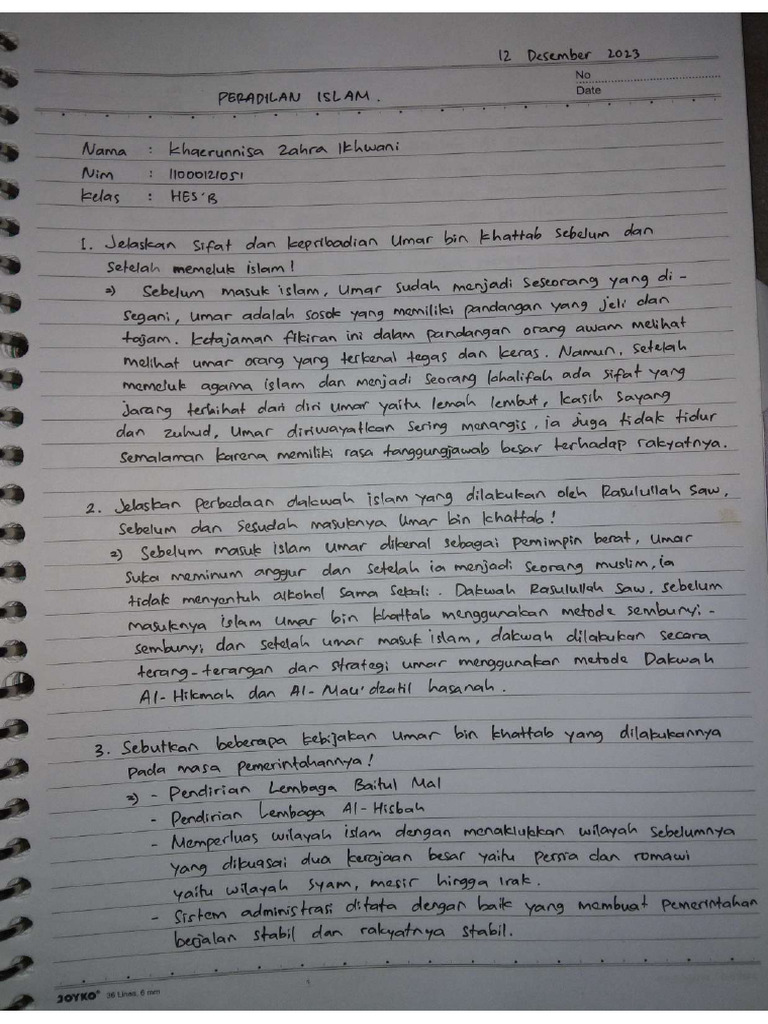 12 Desember 2023
No
Date
PERADILAN ISLAM.
Nama : Khaerunnisa Zahra Ikhwani
Nim : 11000121051
Kelas : HES'B
1. Jelaskan sifat dan kepribadian Umar bin Khattab sebelum dan
setelah memeluk islam!
=) Sebelum masuk islam, Umar sudah menjadi seseorang yang di-
segani, Umar adalah sosok yang memiliki pandangan yang jeli dan
tajam. Ketajaman fikiran ini dalam pandangan orang awam melihat
melihat umar orang yang terkenal tegas dan keras. Namun, setelah
memeluk agama islam dan menjadi seorang khalifah ada sifat yang
jarang terlihat dari diri Umar yaitu lemah lembut, kasih sayang
dan zuhud, Umar diriwayatkan sering menangis, ia juga tidak tidur
semalaman karena memiliki rasa tanggungjawab besar terhadap rakyatnya.
2. Jelaskan perbedaan dakwah islam yang dilakukan oleh Rasulullah Saw,
sebelum dan sesudah masuknya Umar bin Khattab!
=) Sebelum masuk islam Umar dikenal sebagai pemimpin berat, Umar
suka meminum anggur dan setelah ia menjadi seorang muslim, ia
tidak menyentuh alkohol sama sekali. Dakwah Rasulullah Saw. sebelum
masuknya islam Umar bin Khattab menggunakan metode sembunyi-
sembunyi dan setelah umar masuk islam, dakwah dilakukan secara
terang-terangan dan strategi umar menggunakan metode Dakwah
Al-Hikmah dan Al-Mau'dzatil hasanah.
3. Sebutkan beberapa kebijakan Umar bin Khattab yang dilakukannya
pada masa pemerintahannya!
=) - Pendirian Lembaga Baitul Mal
- Pendirian Lembaga Al-Hisbah
- Memperluas wilayah islam dengan menaklukkan wilayah sebelumnya
yang dikuasai dua kerajaan besar yaitu persia dan romawi
yaitu wilayah Syam, mesir hingga Irak.
- Sistem administrasi ditata dengan baik yang membuat pemerintahan
berjalan stabil dan rakyatnya stabil.
JOYKO 36 Lines, 6 mm